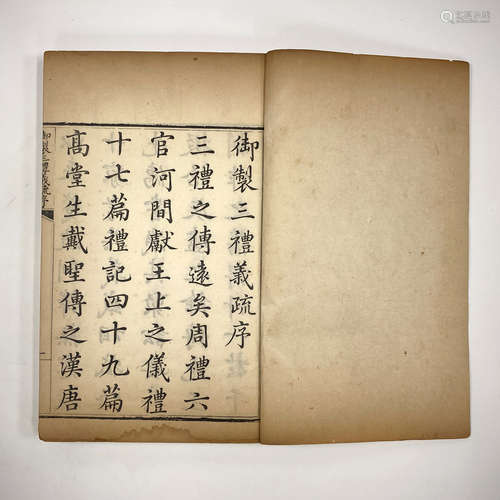 御製三禮義疏序
三禮之傳遠矣周禮六
官河間獻王上之儀禮
十七篇禮記四十九篇
高堂生戴聖傳之漢唐
御製三禮義疏序